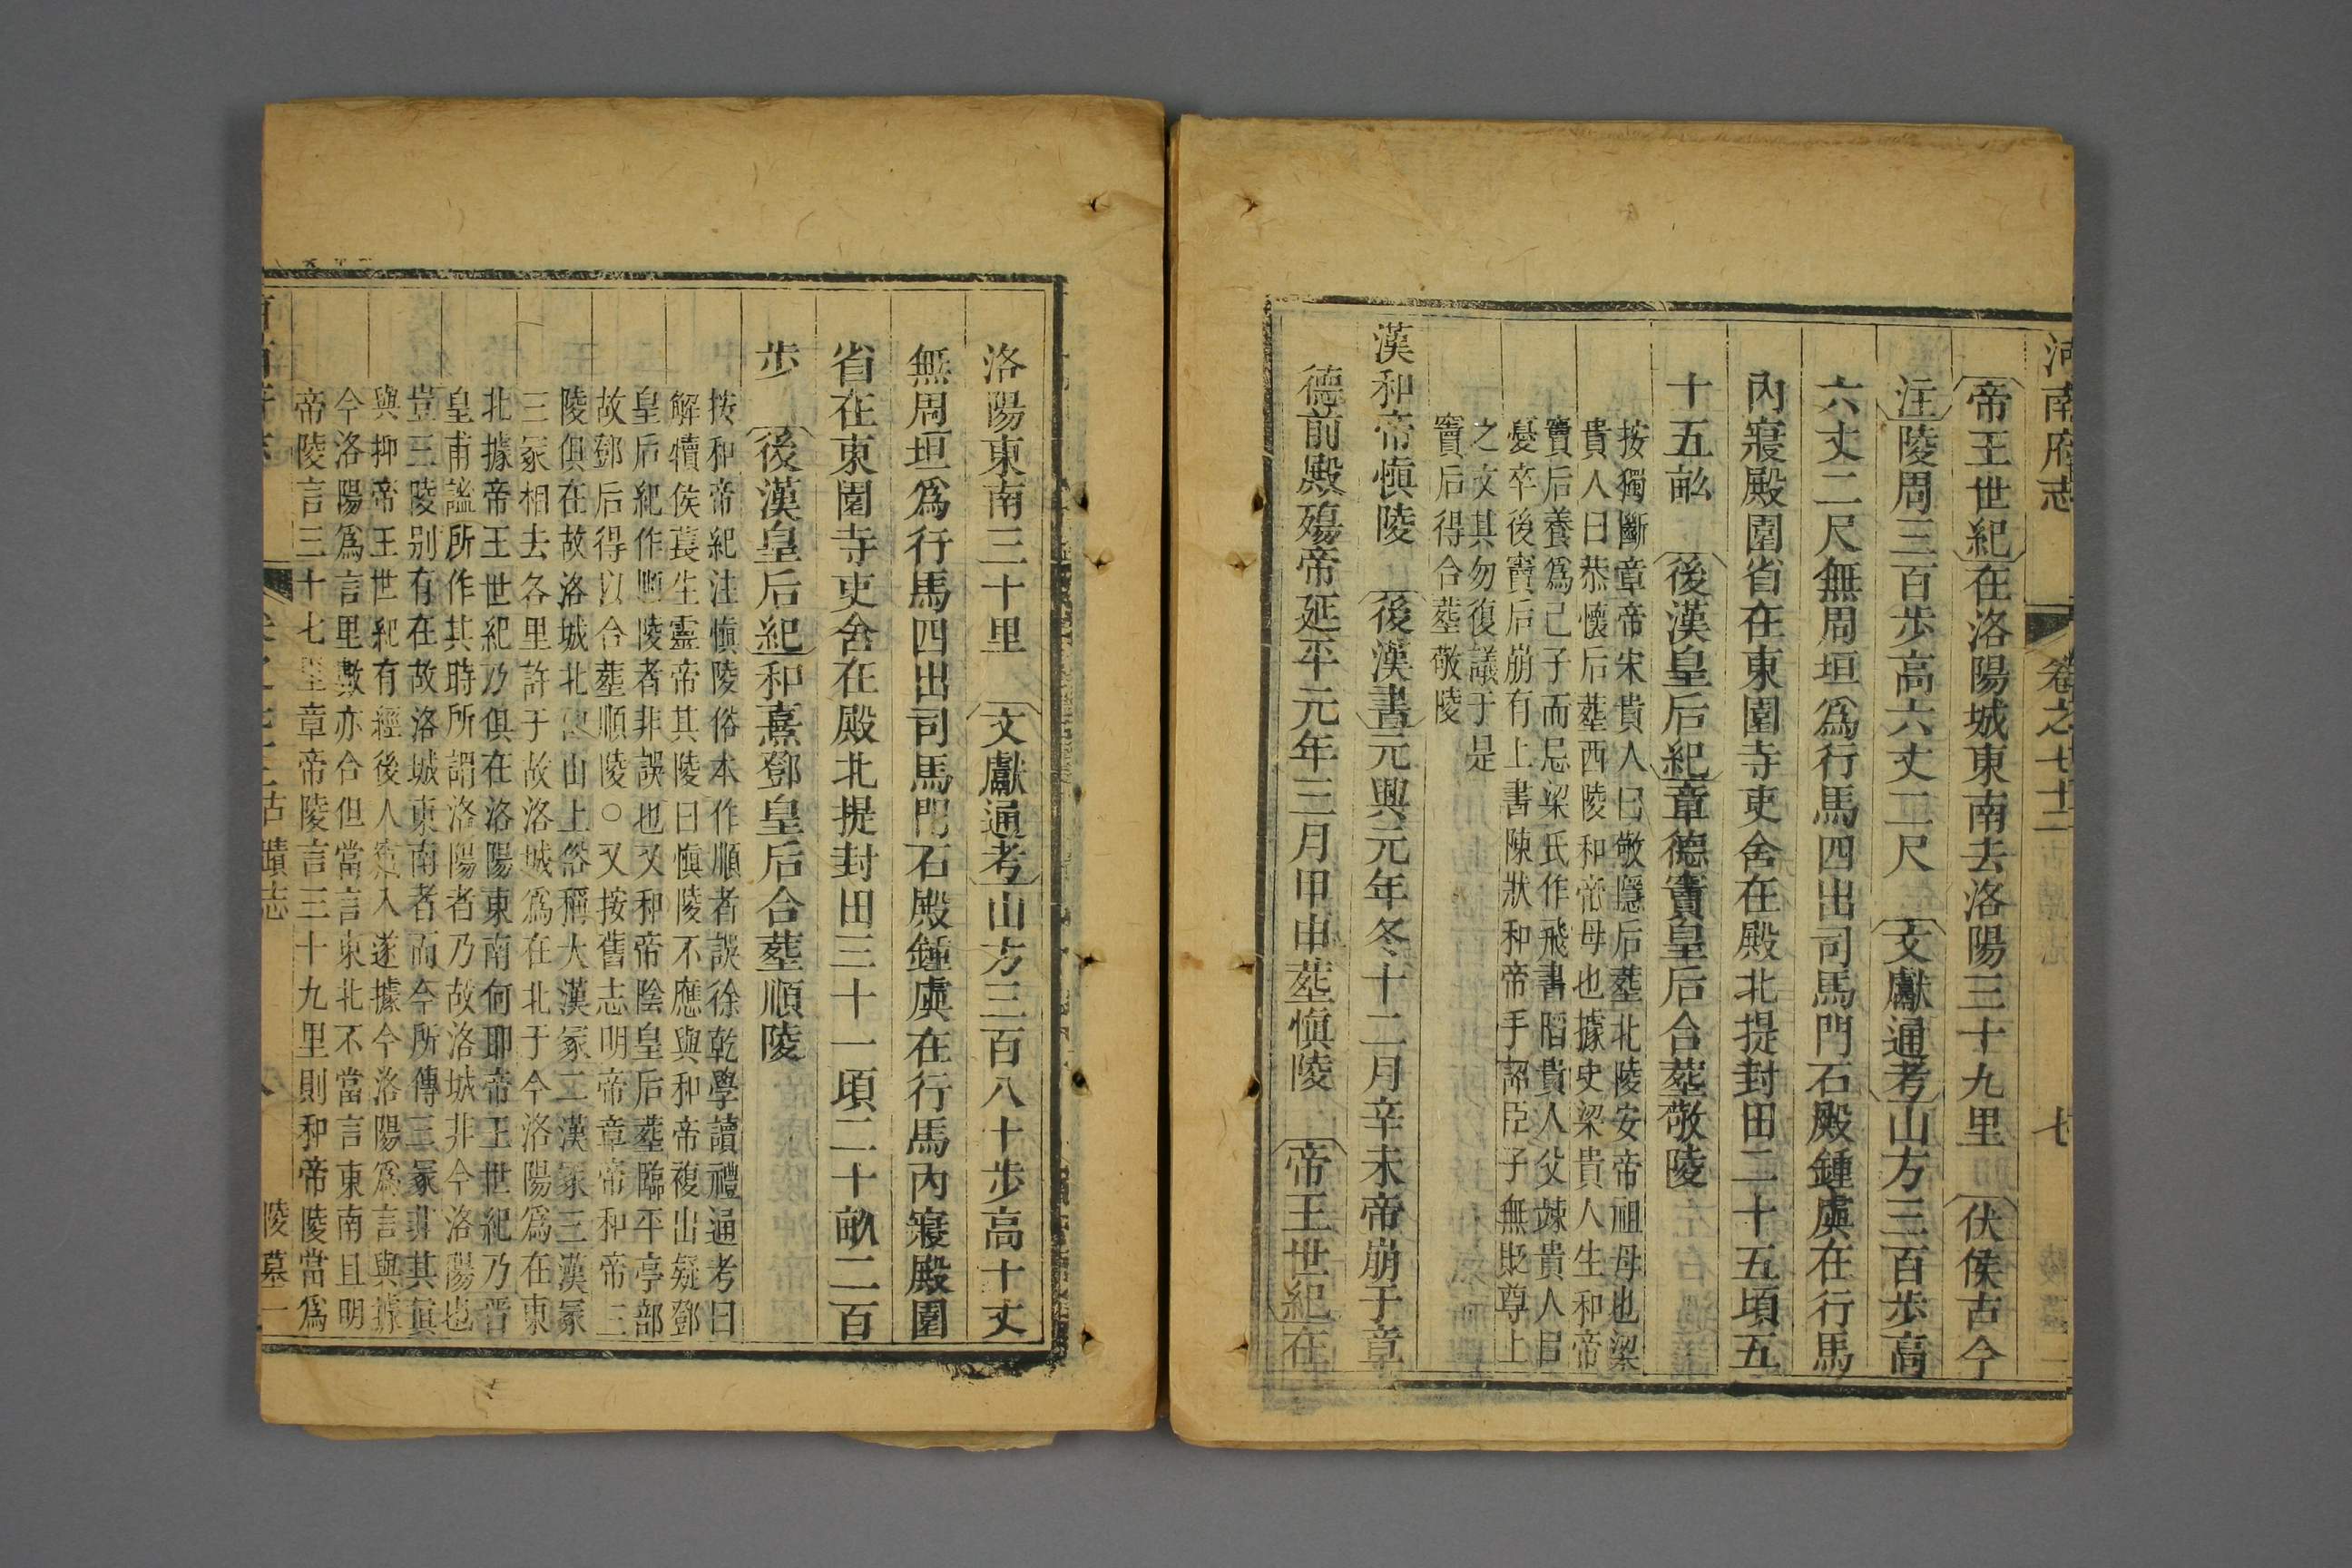 河南府志 卷之七十二 七
帝王世紀在洛陽城東南去洛陽三十九里 伏侯古今
注陵周三百步高六丈二尺 文獻通考山方三百步高
六丈二尺無周垣爲行馬四出司馬門石殿鍾虡在行馬
內寢殿園省在東園寺吏舍在殿北提封田二十五頃五
十五畝 後漢皇后紀章德竇皇后合塟敬陵
按獨斷章帝宋貴人曰敬隱后塟北陵安帝祖母也梁
貴人曰恭懷后塟西陵和帝母也據史梁貴人生和帝
竇后養爲己子而忌梁氏作飛書陷貴人父竦貴人目
憂卒後竇后崩有上書陳狀和帝手詔臣子無貶尊上
之文其勿復議于是
竇后得合塟敬陵
漢和帝愼陵 後漢書元興元年冬十二月辛未帝崩于章
德前殿殤帝延平元年三月甲申塟愼陵 帝王世紀在
洛陽東南三十里 文獻通考山方三百八十步高十丈
無周垣爲行馬四出司馬門石殿鍾虡在行馬內寢殿園
省在東園寺吏舍在殿北提封田三十一頃二十畝二百
步 後漢皇后紀和熹鄧皇后合塟順陵
按和帝紀注愼陵俗本作順者誤徐乾學讀禮通考曰
解犢侯萇生靈帝其陵曰愼陵不應與和帝複出疑鄧
皇后紀作順陵者非誤也又和帝陰皇后塟臨平亭部
故鄧后得以合塟順陵○又按舊志明帝章帝和帝三
陵俱在故洛城北邙山上俗稱大漢冢二漢冢三漢冢
三冢相去各里許于故洛城爲在北于今洛陽爲在東
北據帝王世紀乃俱在洛陽東南何耶帝王世紀乃晉
皇甫謐所作其時所謂洛陽者乃故洛城非今洛陽也
豈三陵别有在故洛城東南者而今所傳三冢非其眞
與抑帝王世紀有經後人竄入遂據今洛陽爲言與據
今洛陽爲言里數亦合但當言東北不當言東南且明
帝陵言三十七里章帝陵言三十九里則和帝陵當爲
古蹟志 八 陵墓一